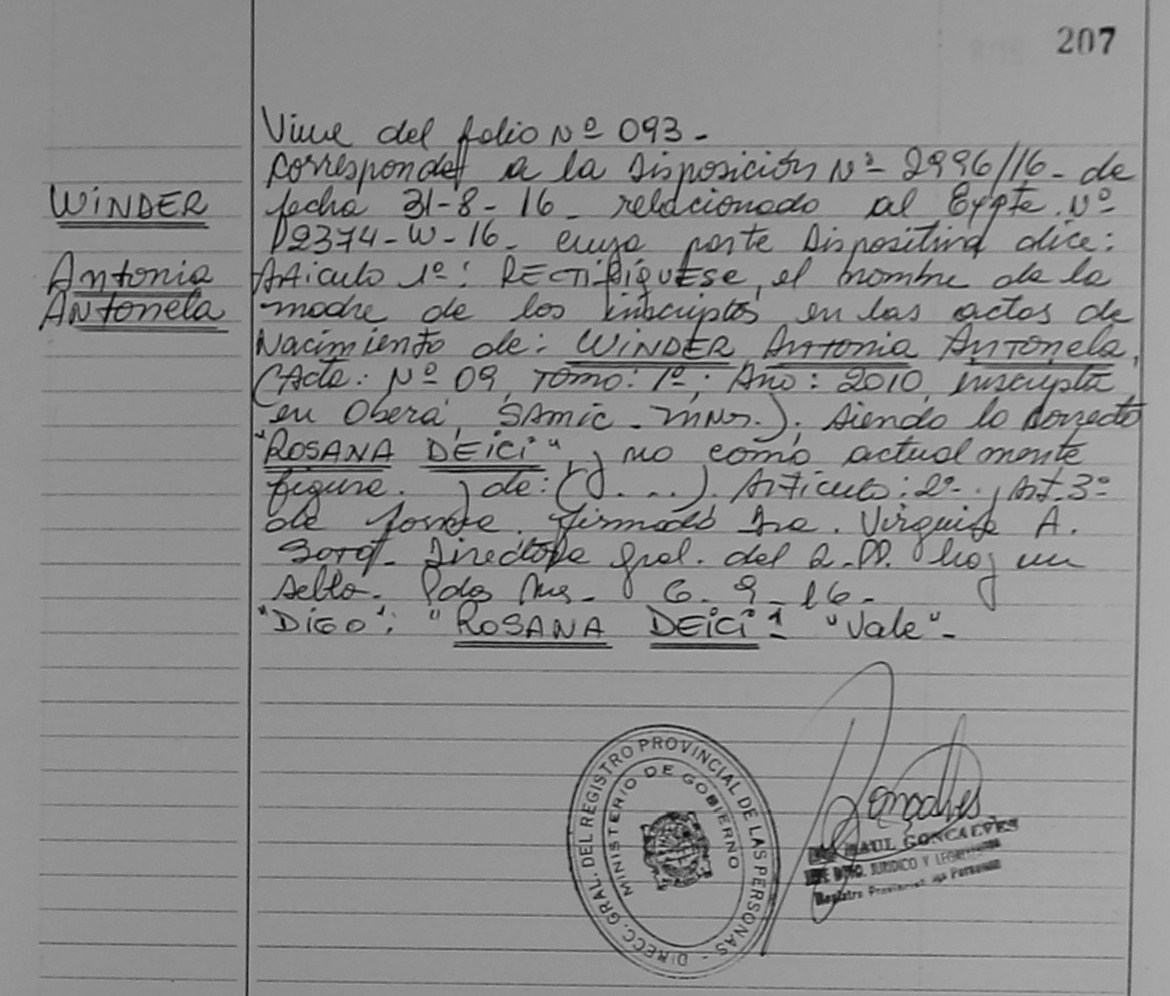 207
WINDER
Antonia
Antonela
Viene del folio Nº 093-
corresponde a la Disposición Nº 2996/16- de
fecha 31-8-16- relacionado al Expte. Nº
2374-W-16- cuya parte Dispositiva dice:
Articulo 1º: RECTIFIQUESE, el nombre de la
madre de los inscriptos en las actas de
Nacimiento de: WINDER Antonia Antonela,
(Acta: Nº 09, Tomo: 1º; Año: 2010, inscripta
en Oberá, SAMIC - Mnes.). siendo lo correcto
"ROSANA DEICI", no como actualmente
figura. y de: (....). Articulo: 2º-, Art. 3º
de forma. firmado Dra. A.
Directora Gral. del R.PP. hay un
sello. Pdas Mes- 6-9-16-
"Digo": "ROSANA DEICI". "Vale"-
DIRECC. GRAL. DEL REGISTRO PROVINCIAL DE LAS PERSONAS -
MINISTERIO DE GOBIERNO
Goncalves
RAUL GONCALVES
JEFE DPTO. JURIDICO Y
Registro Provincial las Personas